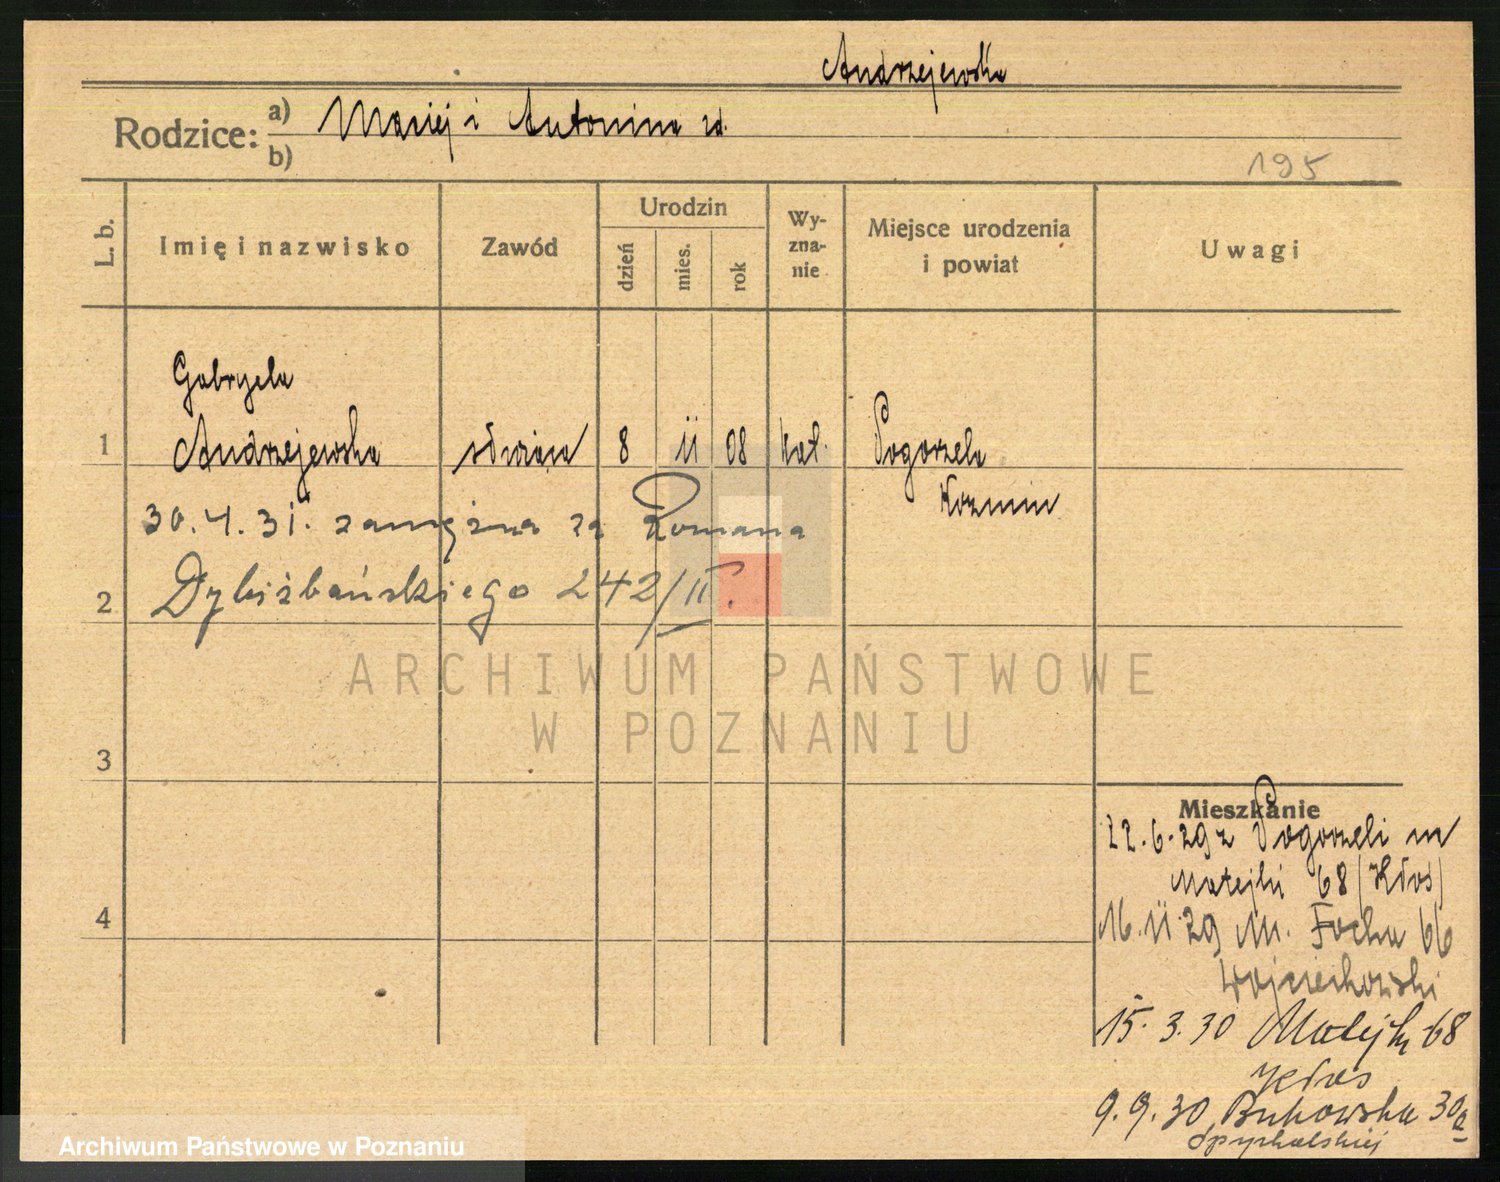 Andrzejewska
Rodzice: a) Maciej i Antonina zd.
b)
195
L. b.
Imię i nazwisko
Zawód
Urodzin
dzień
mies.
rok
Wy-
zna-
nie
Miejsce urodzenia
i powiat
Uwagi
Gabryela
1 Andrzejewska 8 11 08 kat. Pogorzela
Kozmin
30.4.31. zamężna za Romana
2 Dybizbańskiego 242/II.
ARCHIWUM PAŃSTWOWE
W POZNANIU
3
Mieszkanie
22.6.29 z Pogorzeli m
Matejki 68 (Kłos)
4
16.11.29 M. Focha 66
Wojciechowski
15.3.30 Matejki 68
Kłos
9.9.30 Bukowska 30a
Spychalskiej
Archiwum Państwowe w Poznaniu